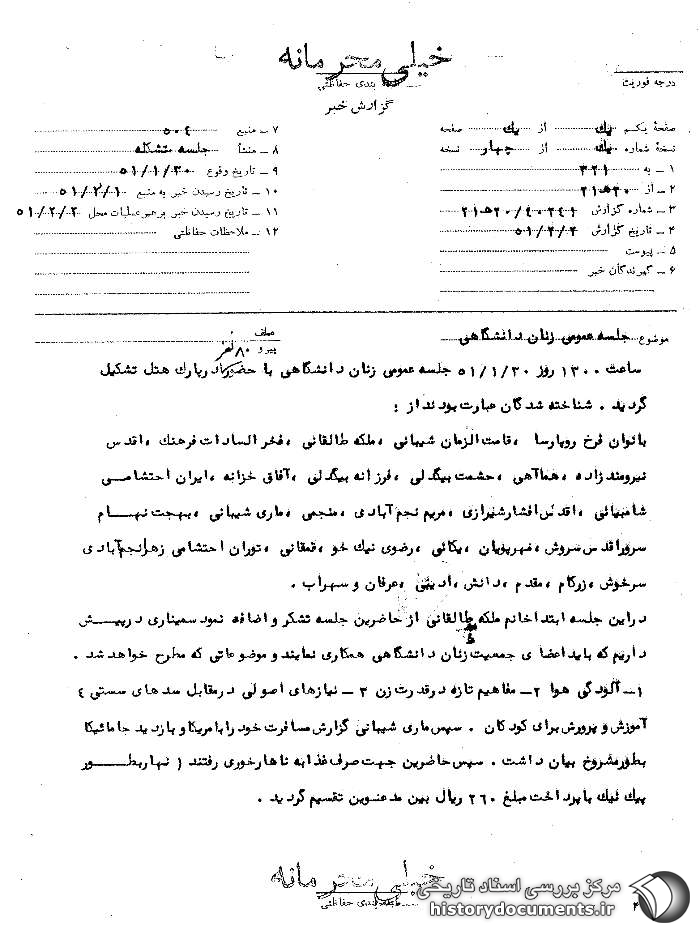 خیلی محرمانه
طبقه بندی حفاظتی
درجه فوریت
گزارش خبر
صفحهٔ یکم یك از یك صفحه
نسخهٔ شماره یك از چهار نسخه
۱ ــ به ۳۲۱
۲ ــ از ۲۰ھ۲۱
۳ ــ شماره گزارش ۴۰۲۴۱/۲۰ھ۲۱
۴ ــ تاریخ گزارش ۵۱/۲/۴
۵ ــ پیوست
۶ ــ گیرندگان خبر
۷ ــ منبع ۵۰۴
۸ ــ منشأ جلسه متشکله
۹ ــ تاریخ وقوع ۵۱/۱/۳۰
۱۰ ــ تاریخ رسیدن خبر به منبع ۵۱/۲/۱
۱۱ ــ تاریخ رسیدن خبر برهبر عملیات محل ۵۱/۲/۲
۱۲ ــ ملاحظات حفاظتی
موضوع جلسه عمومی زنان دانشگاهی
عطف
پیرو
ساعت ۱۳۰۰ روز ۵۱/۱/۳۰ جلسه عمومی زنان دانشگاهی با حضور ۸۰ نفر درپارك هتل تشکیل
گردید . شناخته شدگان عبارت بودند از :
بانوان فرخ روپارسا ، قامت الزمان شیبانی ، ملکه طالقانی ، فخر السادات فرهنك ، اقدس
نیرومند زاده ، هما آهی ، حشمت بیگدلی ، فرزانه بیگدلی ، آفاق خزانه ، ایران احتشامی
شامبیاتی ، اقدس افشار شیرازی ، مریم نجم آبادی ، منجمی ، ماری شیبانی ، بهجت نهام
سرور اقدس سروش ، مهرپویان ، یکانی ، رضوی نیك خو ، قمقانی ، توران احتشامی زهرا نجم آبادی
سرخوش ، زرکام ، مقدم ، دانش ، ادیبی ، عرفان و سهراب .
دراین جلسه ابتدا خانم ملکه طالقانی از حاضرین جلسه تشکر و اضافه نمود سمیناری درپیش
داریم که باید اعضا ی جمعیت زنان دانشگاهی همکاری نمایند و موضوعاتی که مطرح خواهد شد .
۱ــ آلودگی هوا ۲ــ مفاهیم تازه درقدرت زن ۳ ــ نیازهای اصولی درمقابل سدهای سستی ٤
آموزش و پرورش برای کودکان . سپس ماری شیبانی گزارش مسافرت خود را بامریکا و بازدید جامائیکا
بطور مشروح بیان داشت . سپس حاضرین جهت صرف غذا به ناهارخوری رفتند ( نهار بطور
پیك نیك با پرداخت مبلغ ۲۶۰ ریال بین مدعوین تقسیم گردید .
خیلی محرمانه
طبقه بندی حفاظتی
مرکز بررسی اسناد تاریخی
historydocuments.ir